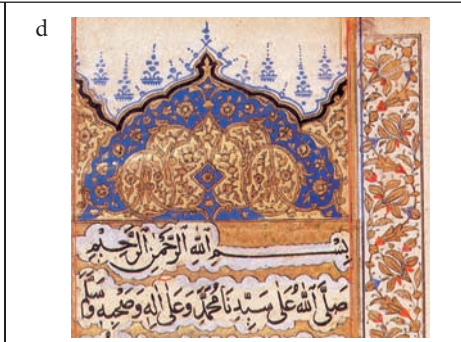 d
بِسْمِ اللهِ الرَّحْمٰنِ الرَّحِيْمِ
صَلَّى اللهُ عَلَى سَيِّدِنَا مُحَمَّدٍ وَعَلَى اٰلِهِ وَصَحْبِهِ وَسَلَّمَ